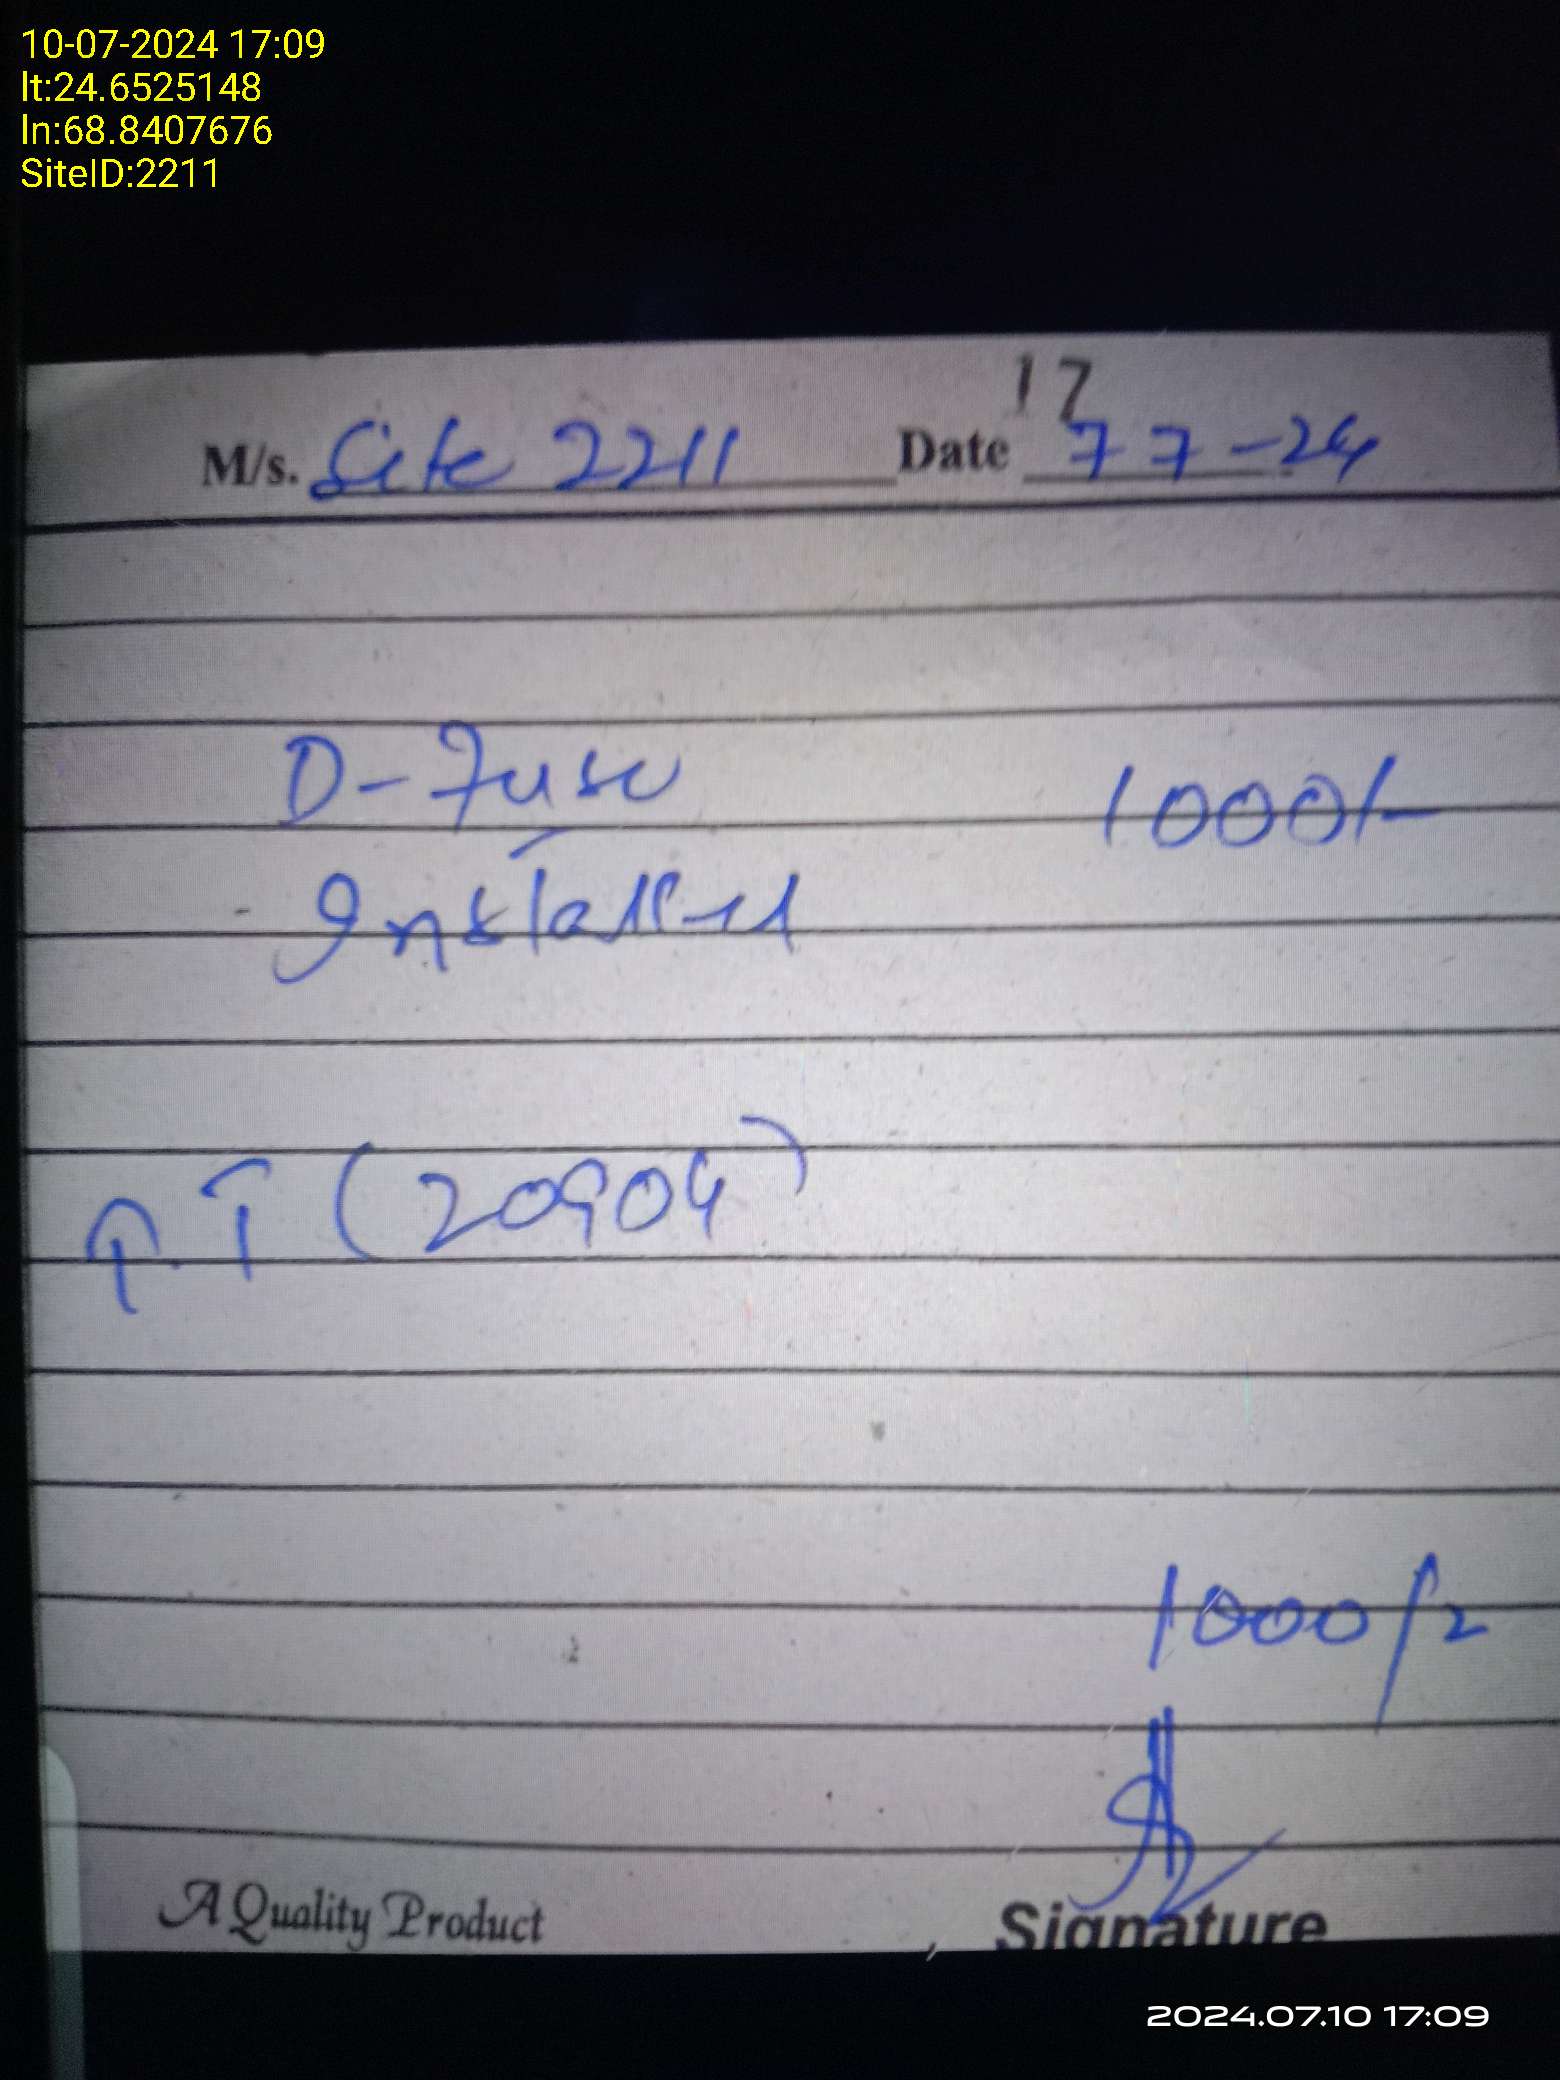 10-07-2024 17:09
lt:24.6525148
ln:68.8407676
SiteID:2211
17
M/s. Site 2211 Date 7 7-24
D-Fuse 1000/-
Installed
P.T (20904)
1000/-
A Quality Product Signature
2024.07.10 17:09